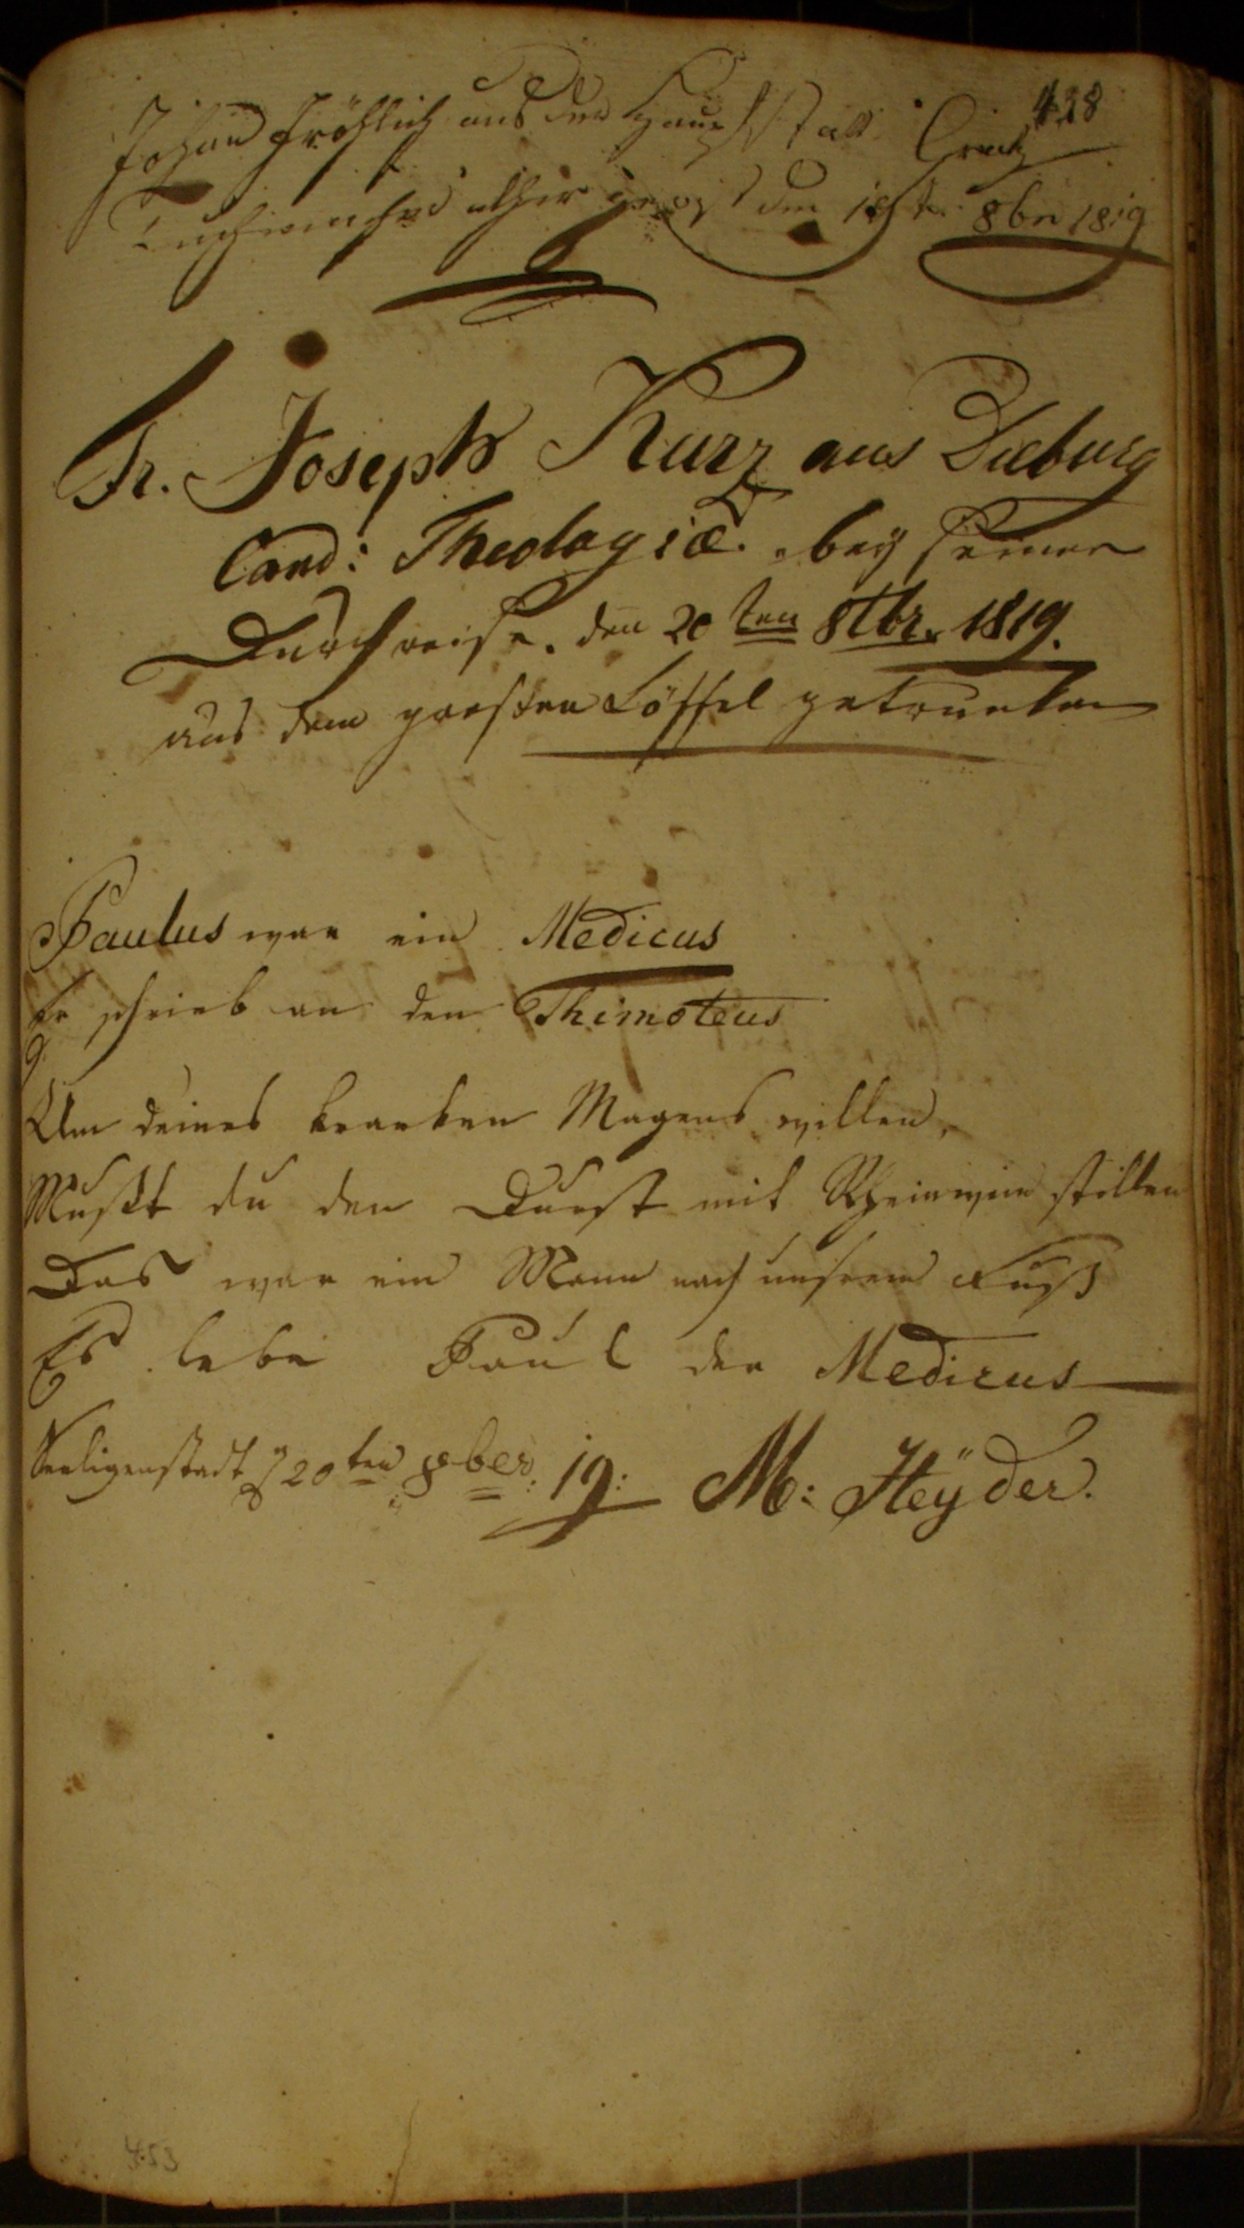 428
Johan Fröhlich aus der Haupt Statt Gratz
Tuchmacher alhir den 18t 8ber 1819
Fr. Joseph Kurz aus Dieburg
Cand: Theologiæ. bey seiner
Durchreise. den 20ten 8tbr. 1819.
aus dem grosten Löffel getrunken
Paulus war ein Medicus
Er schrieb an den Thimoteus
Um deines kranken Magens willen,
Mußt du den Durst mit Rheinwein stillen
Das war ein Mann nach unserm Fuß
Es lebe Paul der Medicus
Seeligenstadt d 20ten 8ber. 19: M: Heÿder.
453